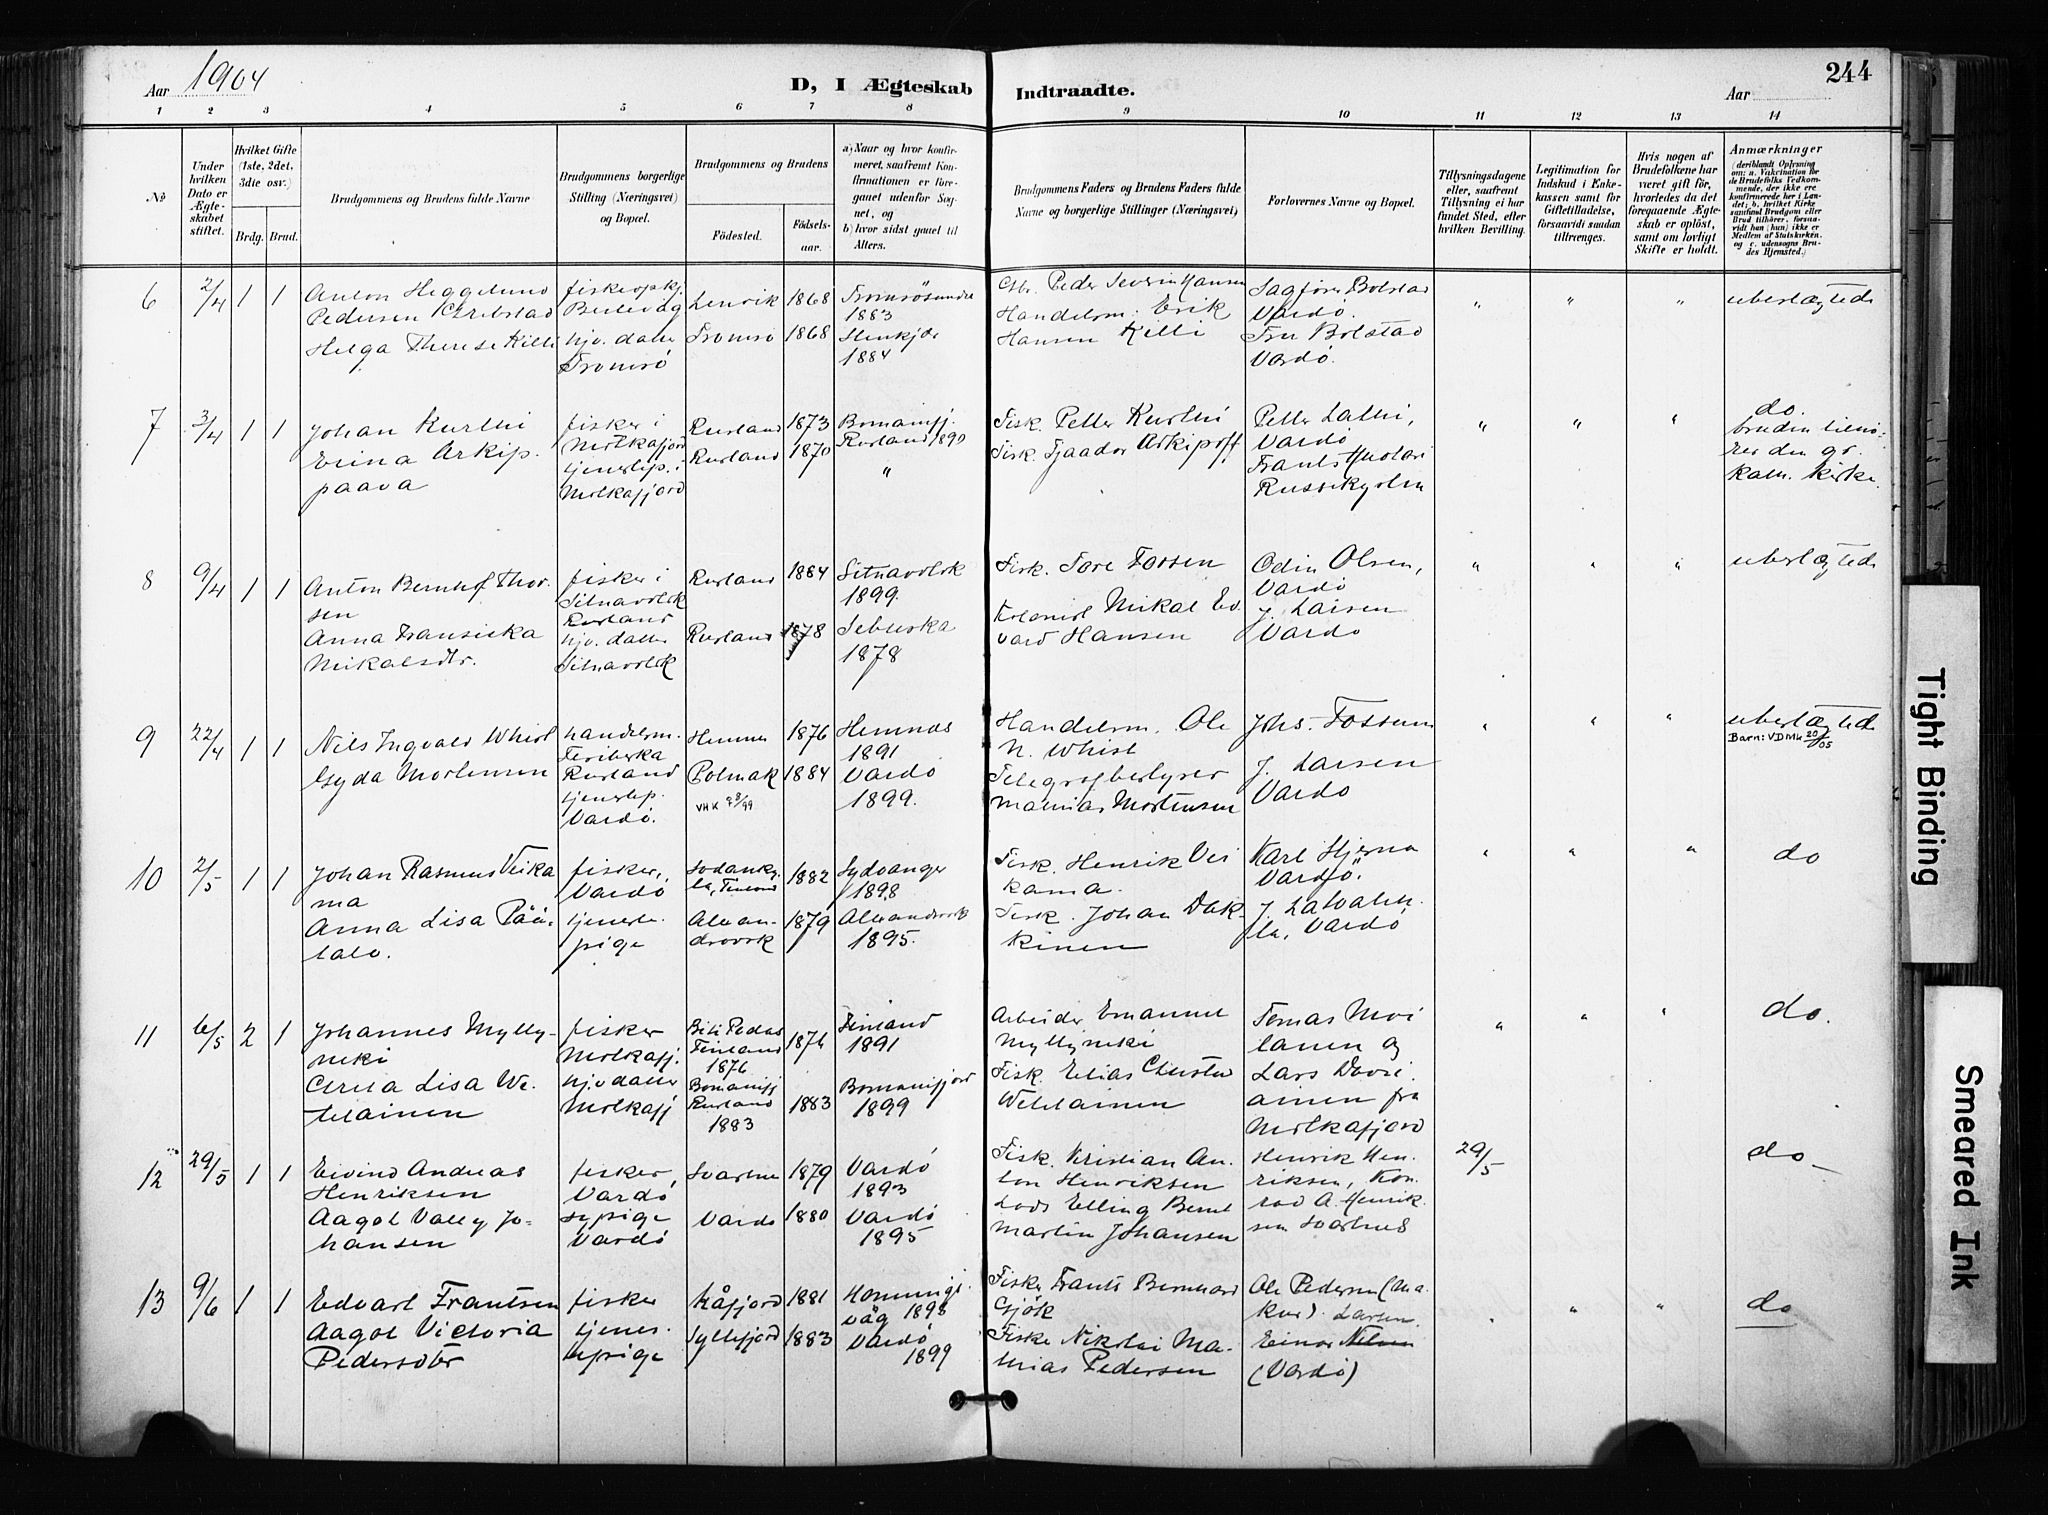 Aar 1904
D, I Ægteskab Indtraadte.
Aar
244
1 2 3 4 5 6 7 8 9 10 11 12 13 14
No
Under hvilken Dato er Ægteskabet stiftet.
Hvilket Gifte (1ste, 2det, 3die osv.)
Brdg. Brud.
Brudgommens og Brudens fulde Navne
Brudgommens borgerlige Stilling (Næringsvei) og Bopæl.
Brudgommens og Brudens
Fødested.
Fødselsaar.
a) Naar og hvor konfirmeret, saafremt Konfirmationen er foregaaet udenfor Sognet, og
b) hvor sidst gaaet til Alters.
Brudgommens Faders og Brudens Faders fulde Navne og borgerlige Stillinger (Næringsvei)
Forlovernes Navne og Bopæl.
Tillysningsdagene eller, saafremt Tillysning ei har fundet Sted, efter hvilken Bevilling.
Legitimation for Indskud i Enkekassen samt for Giftetilladelse, forsaavidt saadan tiltrænges.
Hvis nogen af Brudefolkene har været gift før, hvorledes da det foregaaende Ægteskab er opløst, samt om lovligt Skifte er holdt.
Anmærkninger
(deriblandt Oplysning om: a. Vakcination for de Brudefolks Vedkommende, der ikke ere konfirmerede her i Landet; b. hvilket Kirkesamfund Brudgom eller Brud tilhører, forsaavidt han (hun) ikke er Medlem af Statskirken. og c. udensogns Brudes Hjemsted.)
6 2/4 1 1
Anton Heggelund
Pedersen
Helga Therese Killi
Berlevåg
hjv. datter
Tromsö
Lenvik 1868
Tromsö 1868
Tromsösundet
1883
Stenkjær
1884
Peder Severin Hansen
Handelsm. Erik
Hansen Killi
Sagfører Bolstad
Vardö.
Fru Bolstad
Vardö.
" " "
ubeslægtede
7 3/4 1 1
Johan Kurthi
Erina Arkip.
paava
fisker i
Motkafjord
tjenestep. i
Motkafjord
Rusland 1873
Rusland 1870
Bomanifj.
Rusland 1890
"
Fisk. Petter Kurthi
Fisk. Fjaador Arkipoff
Petter Lathi,
Vardö
Frants
" " "
do.
bruden tilhö-
rer den gr.
kath. kirke.
8 9/4 1 1
Anton Bernhof Thor-
sen
Anna Fransiska
Mikalsdtr.
fisker i
Sitnavolok
Rusland
hjv. datter
Sitnavolok
Rusland 1884
Rusland 1878
Sitnavolok
1899.
1878
Fisk. Tore Torsen
Kolonist Mikal Ed-
vard Hansen
Odin Olsen,
Vardö
J. Larsen
Vardö
" " "
ubeslægtede
9 22/4 1 1
Nils Ingvald Whist
Gyda Mortensen
handelsm.
Teriberka
Rusland
tjenestep.
Vardö.
Hemnes 1876
Polmak 1884
VHK
Hemnæs
1891
Vardö
1899.
Handelsm. Ole
N. Whist
Telegrafbestyrer
Mathias Mortensen
Johs. Fossum
J. Larsen
Vardö
" " "
ubeslægtede
Barn: VDMK 20/7 05
10 2/5 1 1
Johan Rasmus Veika
ma
Anna Lisa Pää-
talo.
fisker,
Vardö
tjeneste-
pige
Sodanky-
la, Finland 1882
Alexan-
drovsk 1879
Sydvanger
1898
Alexandrovsk
1895.
Fisk. Henrik Vei
kama.
Fisk. Johan Dak-
kinen
Karl Hjerna
Vardö.
la, Vardö
" " "
do
11 6/5 2 1
Johannes Mylly-
neki
Greta Lisa We-
telainen
fisker
Motkafj.
hjv. datter
Motkafj
Finland
1876
1876
Bomanifj
Rusland
1883
1883
Finland
1891
Bomanifjord
1899
Arbeider Emanuel
Myllyneki
Fisk. Elias
Wetelainen
Tomas Moi
lanen og
Lars
ainen fra
Motkafjord
" " "
do.
12 29/5 1 1
Eivind Andreas
Henriksen
Aagot Valley Jo-
hansen
fisker,
Vardö
sypige
Vardö
Svartnes 1879
Vardö 1880
Vardö
1893
Vardö
1895
Fisk. Kristian An-
ton Henriksen
Lods Elling Bernt
Martin Johansen
Henrik Hen-
riksen, Kon-
rad A. Henrik-
sen Svartnes
29/5
do
13 9/6 1 1
Edvart Frantsen
Aagot Victoria
Pedersdtr
fisker
tjenes-
tepige
Kåfjord 1881
Syltefjord 1883
Honnings-
våg 1898
Vardö
1899
Fisker Frants Bernhard
Gjök
Fisker Nikolai Ma-
thias Pedersen
Ole Pedersen (Ma-
kur). Larsen
Einar Nilsen
(Vardö)
" " "
do
Tight Binding
Smeared Ink